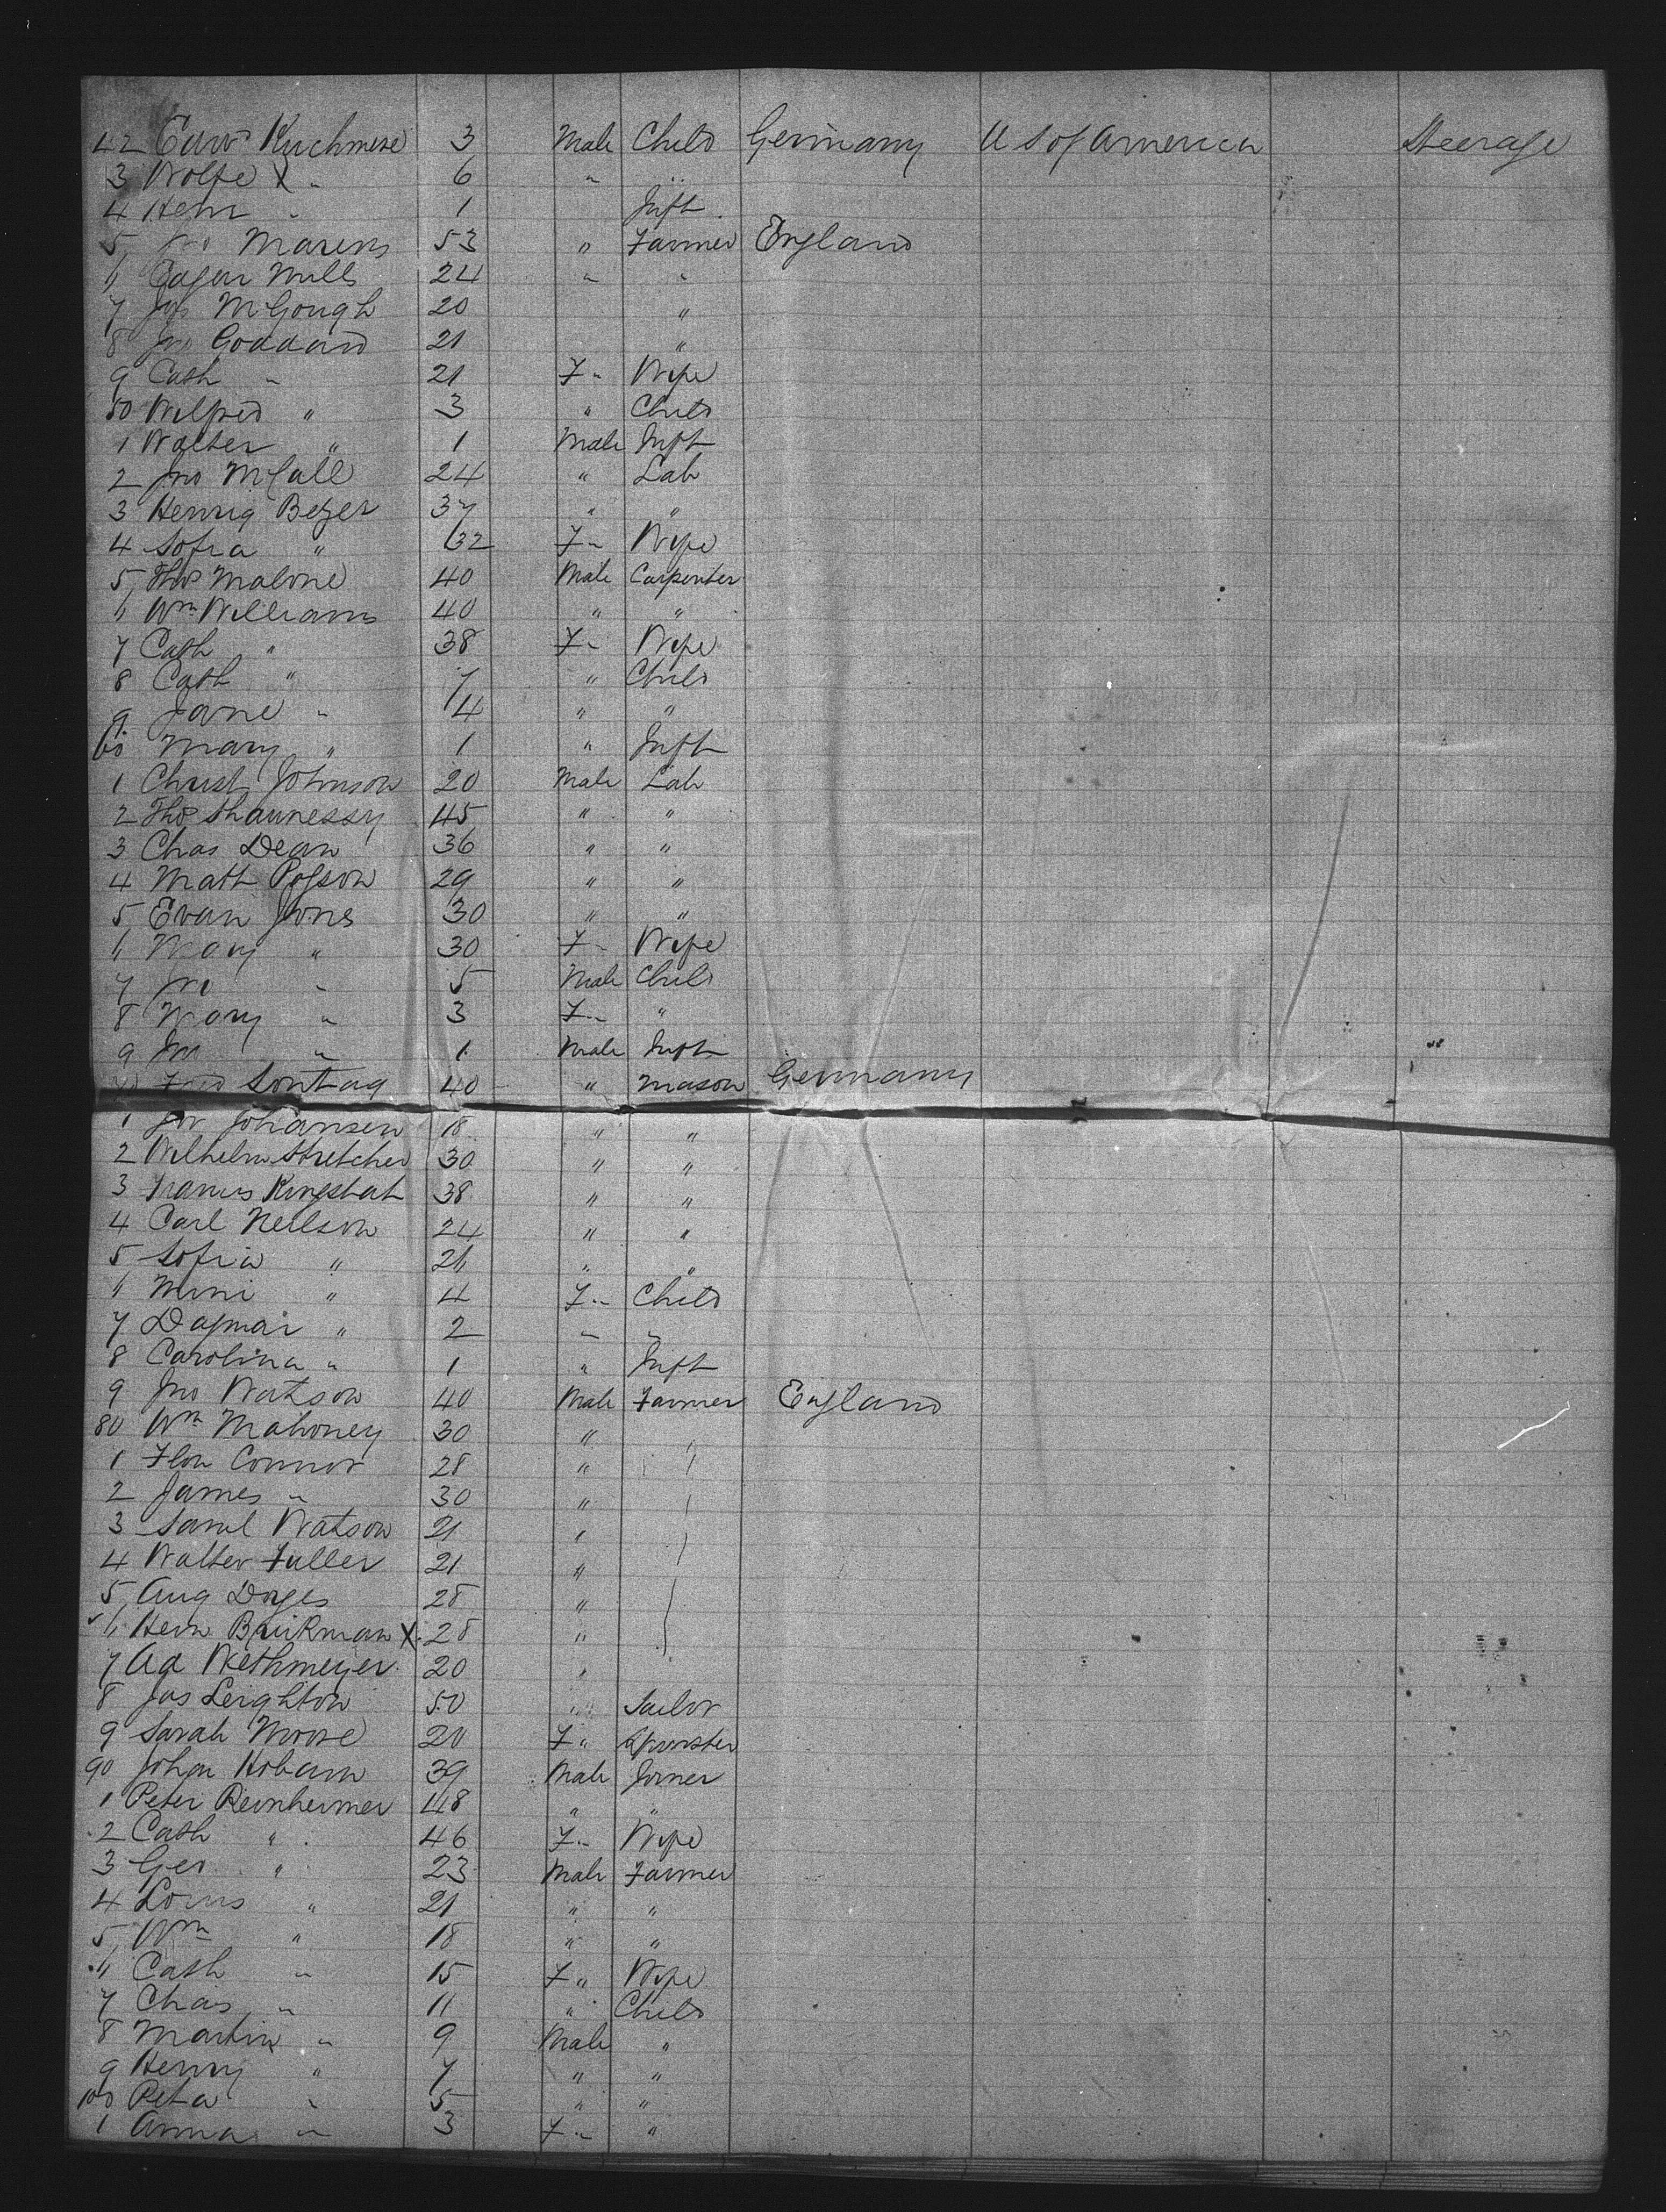 42 Edw Kuchmese 3 Male Child Germany U S of America Steerage
3 Wolfe X " 6 "
4 Henr " 1 Inft
5 Jno Marens 53 " Farmer England
6 Edgar Mills 24 " "
7 Jos McGough 20 "
8 Jno Goddard 21 "
9 Cath " 21 F " Wife
50 Wilfred " 3 " Child
1 Walter " 1 Male Inft
2 Jno McCall 24 " Lab
3 Henrig Beyer 37 " "
4 Sofia " 32 F " Wife
5 Thos Malone 40 Male Carpenter
6 Wm Williams 40 " "
7 Cath " 38 F " Wife
8 Cath " 7 " Child
9 Jane " 4 " "
60 Mary " 1 " Inft
1 Christ Johnson 20 Male Lab
2 Thos Shaunessy 45 " "
3 Chas Dean 36 " "
4 Matt Pogson 29 " "
5 Evan Jones 30 " "
6 Mary " 30 F " Wife
7 Jno " 5 Male Child
8 Mary " 3 F " "
9 " 1 Male Inft
70 Fred Sontag 40 " Mason Germany
1 Jno Johansen 18 " "
2 Wilhelm Stretcher 30 " "
3 Francis 38 " "
4 Carl Neilson 24 " "
5 Sofia " 26 " "
6 Mini " 4 F " Child
7 Dagmar " 2 " "
8 Carolina " 1 " Inft
9 Jno Watson 40 Male Farmer England
80 Wm Mahoney 30 "
1 Flon Connor 28 "
2 James " 30 "
3 Saml Watson 21 "
4 Walter Fuller 21 "
5 Aug Doges 28 "
6 Hern Brinkman X 28 "
7 Ad Wethmeyer 20 "
8 Jas Leighton 50 " Sailor
9 Sarah Moore 20 F " Spinster
90 Johan Hobann 39 Male Joiner
1 Peter Reinheimer 48 " "
2 Cath " 46 F " Wife
3 Geo " 23 Male Farmer
4 Louis " 21 " "
5 Wm " 18 " "
6 Cath " 15 F " Wife
7 Chas " 11 " Child
8 Martin " 9 Male "
9 Henry " 7 " "
100 Peta " 5 " "
1 Anna " 3 F " "